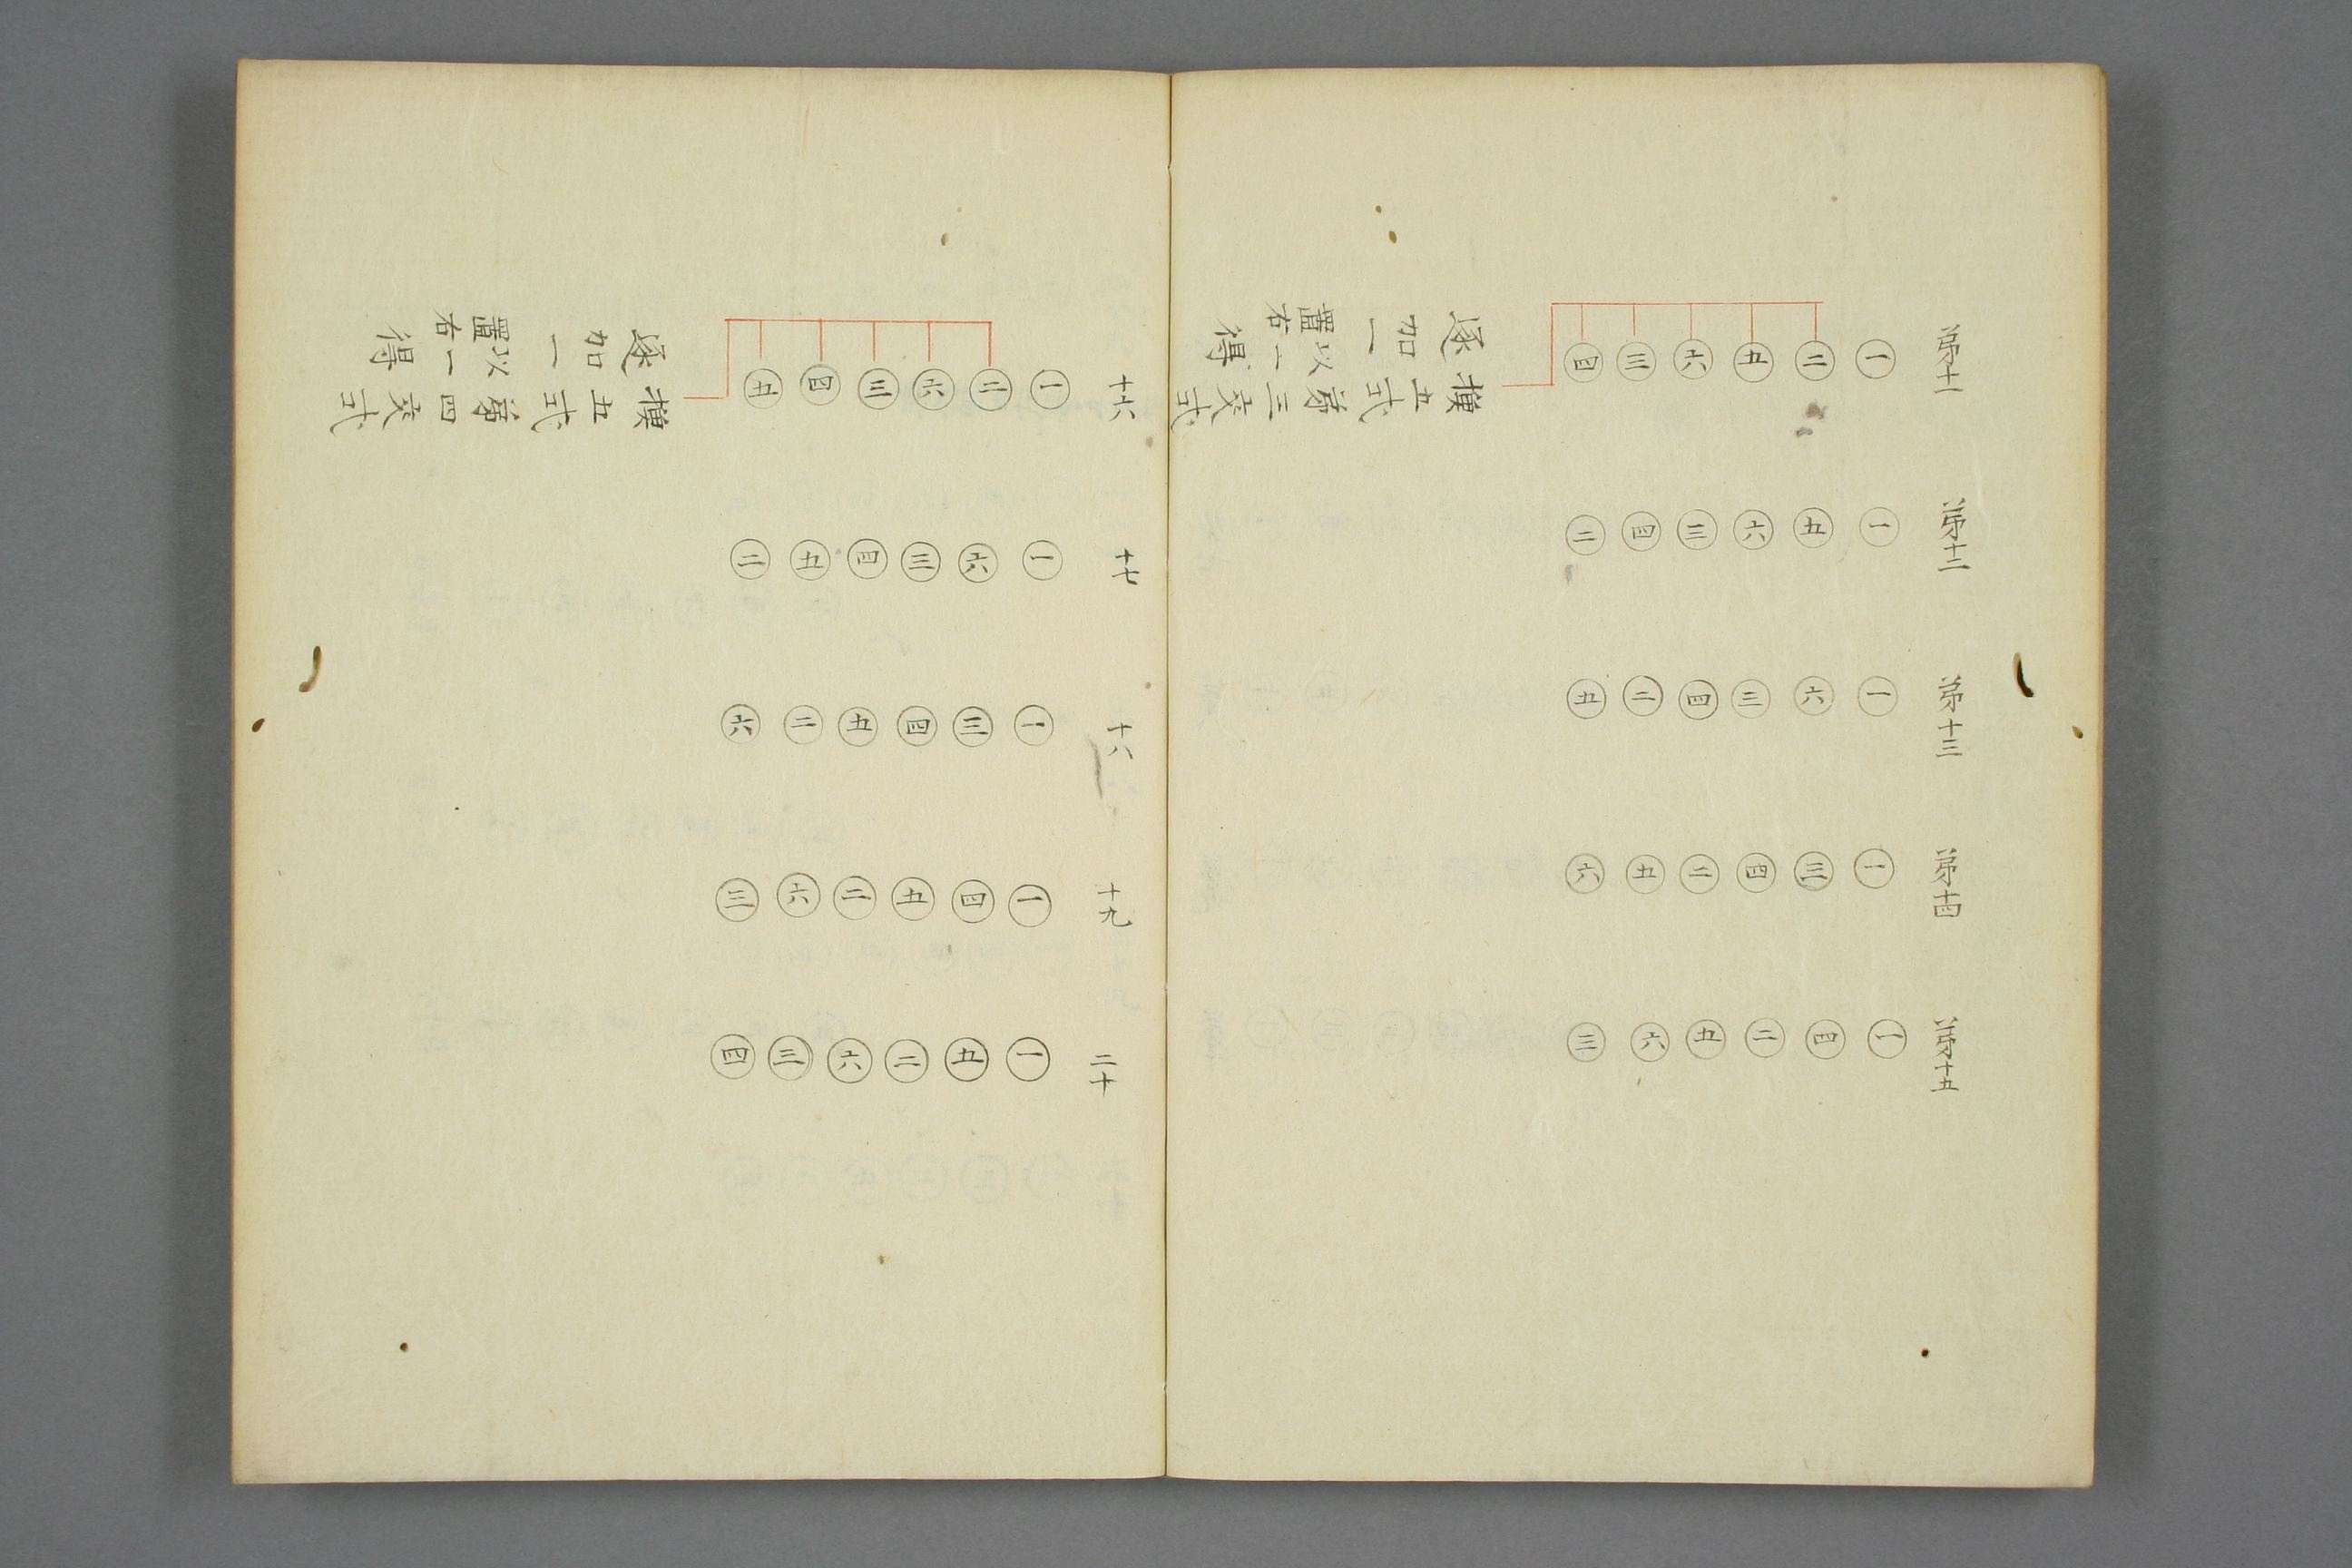 第十一
一二五六三四
換五式第三交式
以二置右
逐加一得
第十二
一五六三四二
第十三
一六三四二五
第十四
一三四二五六
第十五
一四二五六三
十六
一二六三四五
換五式第四交式
以一置右
逐加一得
十七
一六三四五二
十八
一三四五二六
十九
一四五二六三
二十
一五二六三四